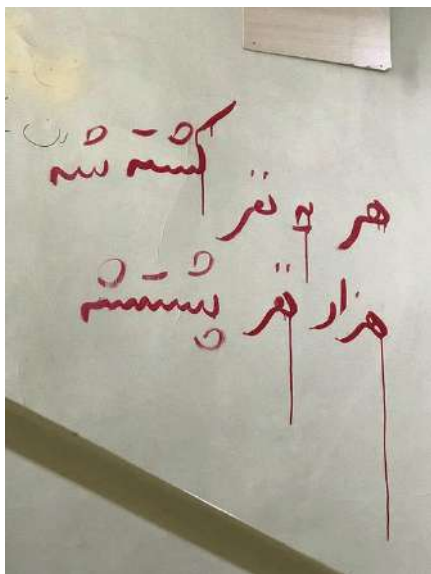 هر یه نفر کشته شه
هزار نفر پشتشه